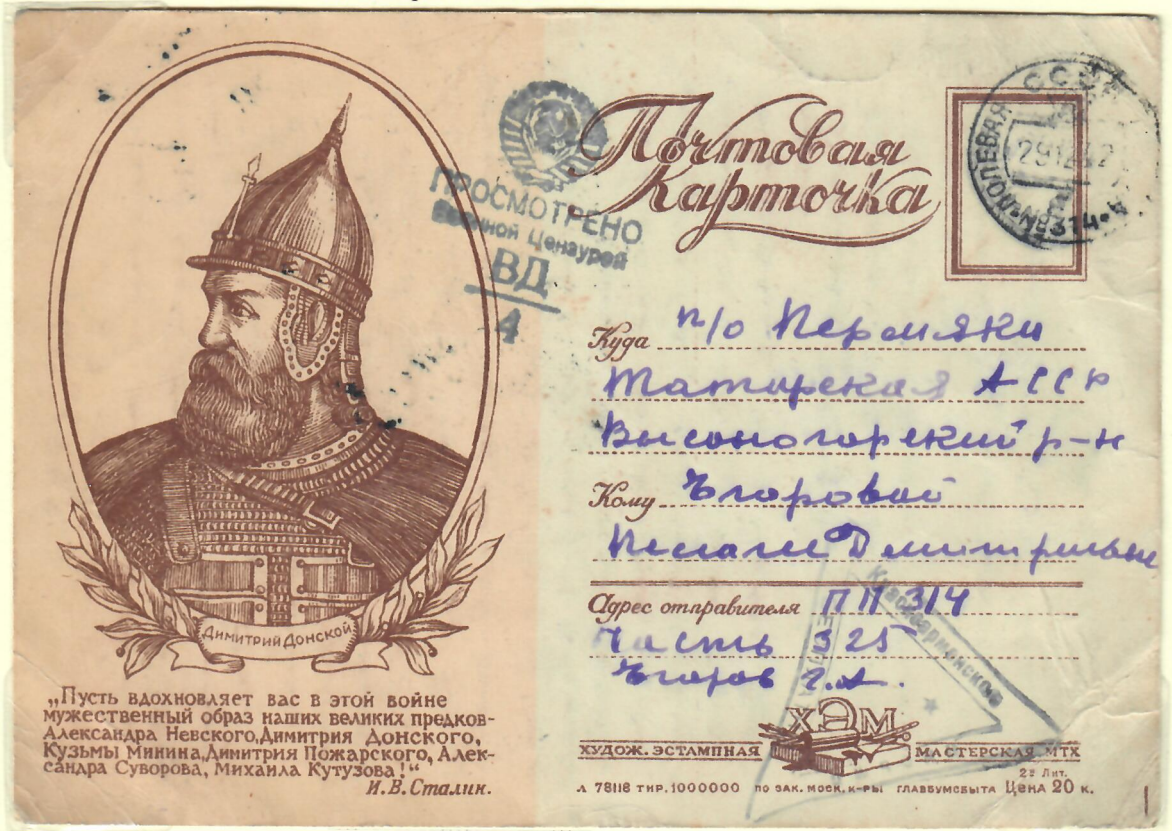 Димитрий Донской
„Пусть вдохновляет вас в этой войне
мужественный образ наших великих предков-
Александра Невского, Димитрия Донского,
Кузьмы Минина, Димитрия Пожарского, Алек-
сандра Суворова, Михаила Кутузова!“
И.В. Сталин.
ПРОСМОТРЕНО
Военной Цензурой
ВД
4
Почтовая
Карточка
СССР
ПОЛЕВАЯ
№314
Куда п/о Пермяки
Татарская АССР
Высокогорский р-н
Кому Егоровой
Пелагее Дмитриевне
Адрес отправителя ПП 314
Часть 325
Егоров Г.А.
Красноармейское
ХЭМ
ХУДОЖ. ЭСТАМПНАЯ МАСТЕРСКАЯ МТХ
Л 78118 ТИР. 1000000 ПО ЗАК. МОСК. К-РЫ ГЛАВБУМСБЫТА Цена 20 к.